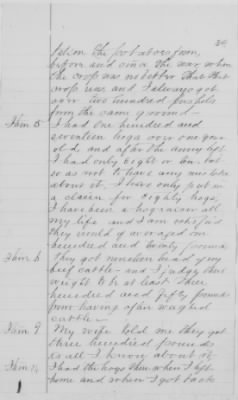 before and since the war, when
the crop was no better than that
crop was, and I always got
over two hundred bushels
from the same ground—
Item 5 I had one hundred and
seventeen hogs over one year
old, and after the army left
I had only eight or ten, but
so as not to have any mistake
about it, I have only put in
a claim for eighty hogs,
I have been a hog raiser all
my life and I am satisfied
they would of averaged one
hundred and twenty pounds
Item 6 They got nineteen head of my
beef cattle— and I judge their
weight to be at least three
hundred and fifty pounds
from having after weighed
cattle—
Item 9 My wife told me they got
three hundred pounds
is all I know about it
I had the hogs there when I left
home and when I got back